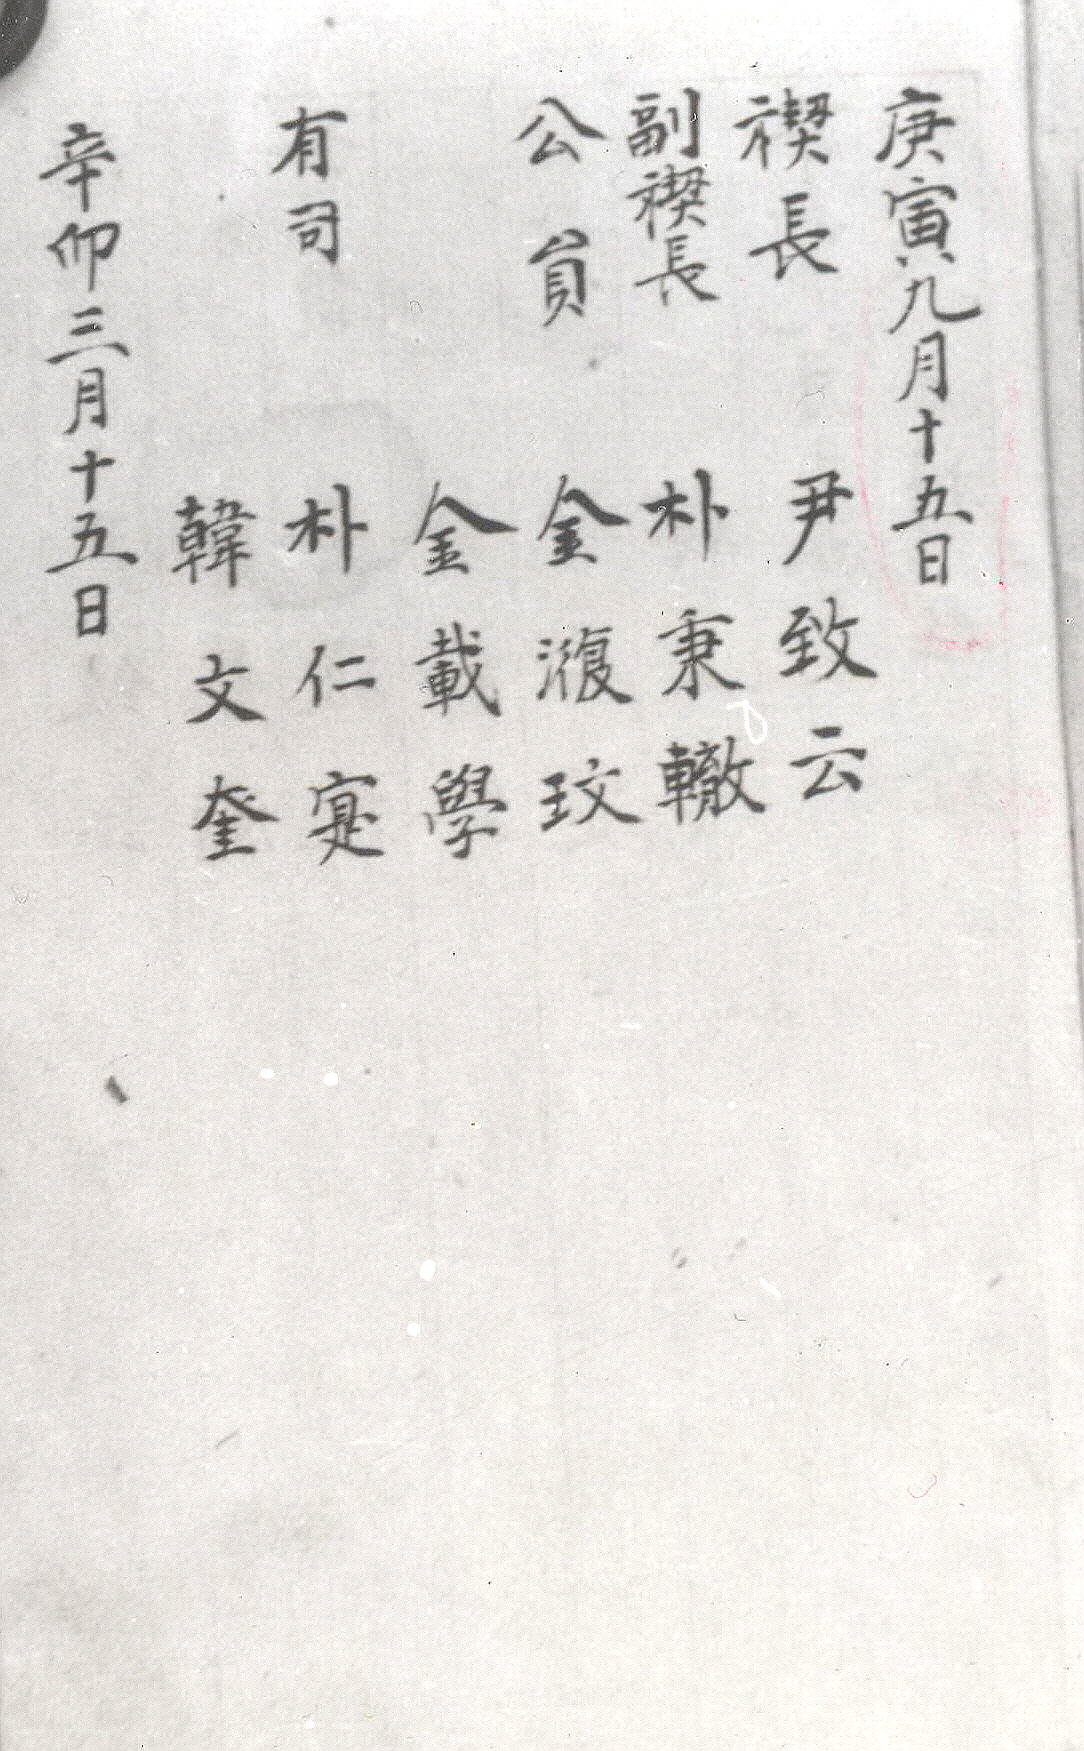 庚寅九月十五日
禊長 尹致云
副禊長 朴秉轍
公員 金澓玟
金載學
有司 朴仁寔
韓文奎
辛卯三月十五日